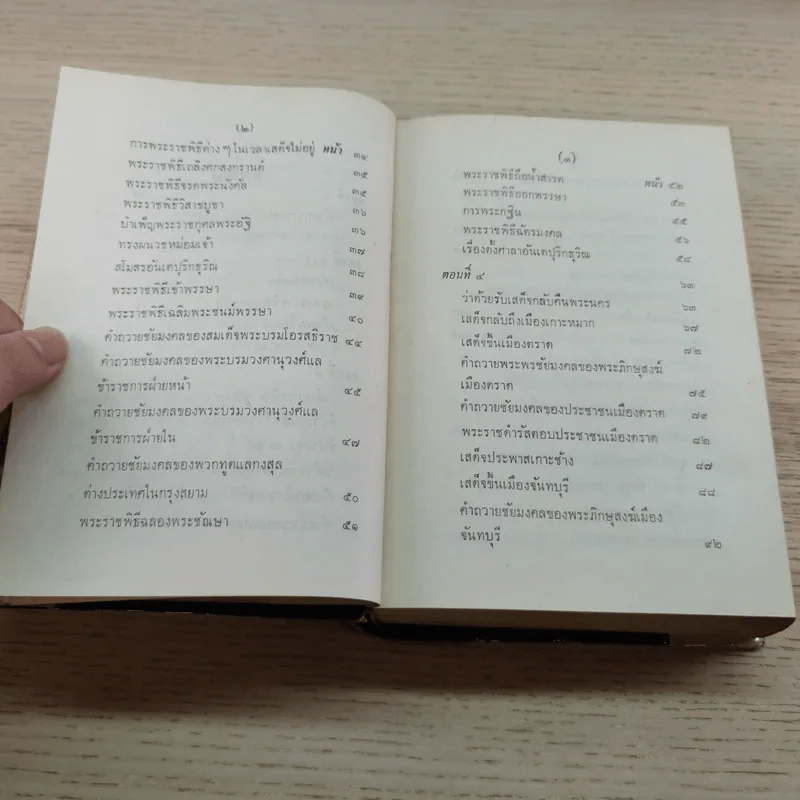 (๒)
การพระราชพิธีต่าง ๆ ในเวลาเสด็จไม่อยู่ หน้า ๓๔
พระราชพิธีเถลิงศกสงกรานต์ ๓๕
พระราชพิธีจรดพระนังคัล ๓๕
พระราชพิธีวิสาขบูชา ๓๖
บำเพ็ญพระราชกุศลพระอัฐิ ๓๖
ทรงผนวชหม่อมเจ้า ๓๗
สโมสรอันเตปุริกธุริณ ๓๘
พระราชพิธีเข้าพรรษา ๓๙
พระราชพิธีเฉลิมพระชนม์พรรษา ๔๐
คำถวายชัยมงคลของสมเด็จพระบรมโอรสธิราช ๔๔
คำถวายชัยมงคลของพระบรมวงศานุวงศ์แล
ข้าราชการฝ่ายหน้า ๔๕
คำถวายชัยมงคลของพระบรมวงศานุวงศ์แล
ข้าราชการฝ่ายใน ๔๗
คำถวายชัยมงคลของพวกทูตแลกงสุล
ต่างประเทศในกรุงสยาม ๕๐
พระราชพิธีฉลองพระชัณษา ๕๑
(๓)
พระราชพิธีถือน้ำสารท หน้า ๕๒
พระราชพิธีออกพรรษา ๕๓
การพระกฐิน ๕๕
พระราชพิธีฉัตรมงคล ๕๖
เรื่องตั้งศาลาอันเตปุริกธุริณ ๕๘
ตอนที่ ๔ ๖๓
ว่าด้วยรับเสด็จกลับคืนพระนคร ๖๓
เสด็จกลับถึงเมืองเกาะหมาก ๖๗
เสด็จขึ้นเมืองตราด ๗๒
คำถวายพระพรชัยมงคลของพระภิกษุสงฆ์
เมืองตราด ๗๕
คำถวายชัยมงคลของประชาชนเมืองตราด ๗๙
พระราชดำรัสตอบประชาชนเมืองตราด ๘๒
เสด็จประพาสเกาะช้าง ๘๗
เสด็จขึ้นเมืองจันทบุรี ๘๘
คำถวายชัยมงคลของพระภิกษุสงฆ์เมือง
จันทบุรี ๙๒